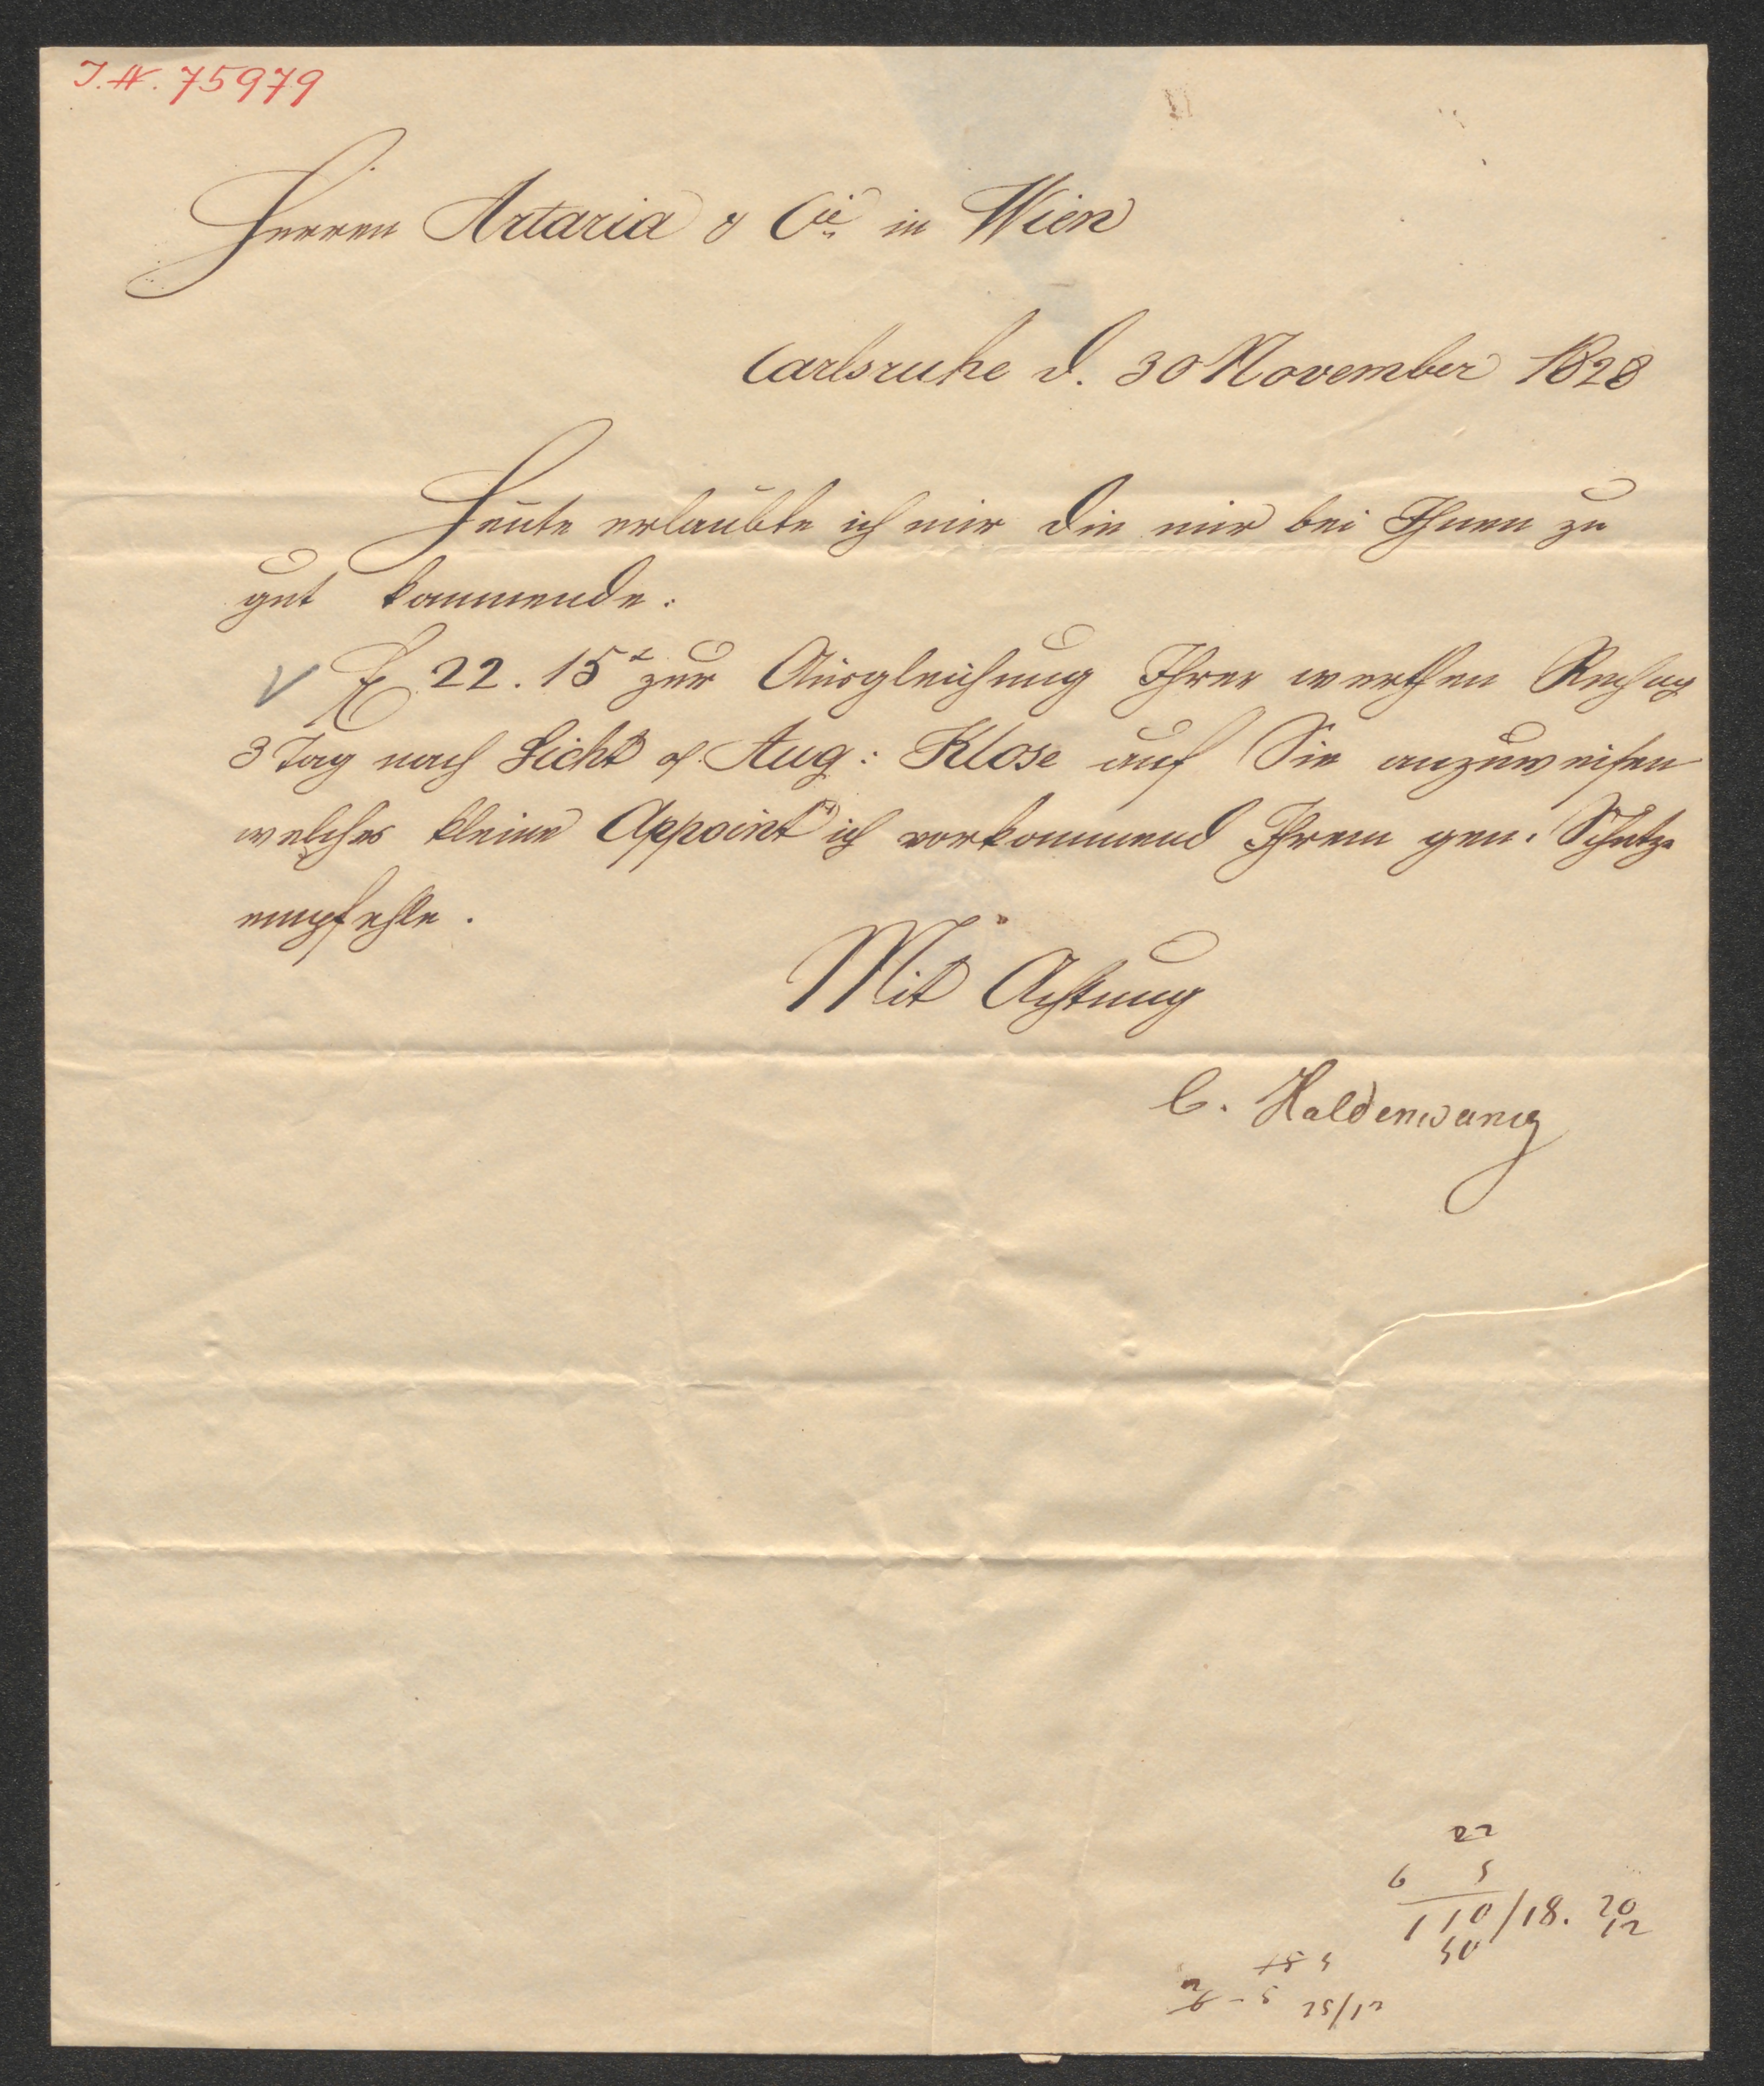 I.N. 75979
Herren Artaria & Cie in Wien
Carlsruhe d. 30 November 1828
Heute erlaubte ich mir die mir bei Ihnen zu
gut kommende:
f 22. 15x zur Ausgleichung Ihrer werthen Rechng
3 Tag nach Sicht o/ Aug: Klose auf Sie anzuweisen
welches kleine Appoint ich vorkommend Ihrem gen. Schutze
empfehle.
Mit Achtung
C. Haldenwang
22
6 5
110/18. 20
50 12
25/12